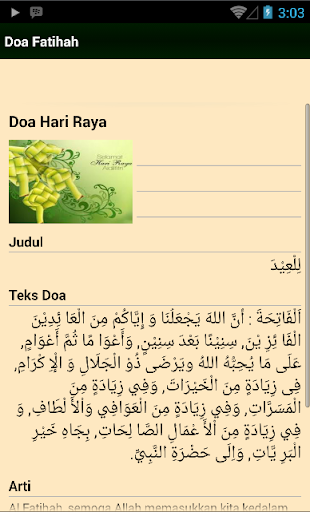 3:03
Doa Fatihah
Doa Hari Raya
Selamat
Hari Raya
Aidilfitri
Judul
لِلْعِيْدَ
Teks Doa
اَلْفَاتِحَةَ : أنَّ اللهَ يَجْعَلَنَا وَ إِيَّاكُمْ مِنَ الْعَا ئِدِيْنَ
الْفَا ئِزِ يْنَ, سِنِيْنًا بَعْدَ سِنِيْنٍ, وَأَعْوَا مًا ثُمَّ أَعْوَامٍ,
عَلَى مَا يُحِبُّهُ اللهُ ويَرْضَى ذُو الْجَلَالِ وَ الْإِ كْرَامِ,
فِى زِيَادَةٍ مِنَ الْخَيْرَاتْ, وَفِي زِيَادَةٍ مِنَ
الْمَسَرَّاتِ, وَفِي زِيَادَةٍ مِنَ الْعَوَافِي وَالْأَ لْطَافِ, وَ
فِي زِيَادَةٍ مِنَ اْلأَ عْمَالِ الصَّا لِحَاتِ, بِجَاهِ خَيْرِ
الْبَرِ يَّاتِ, وَاِلَى حَضْرَةِ النَّبِيِّ.
Arti
Al Fatihah, semoga Allah memasukkan kita kedalam